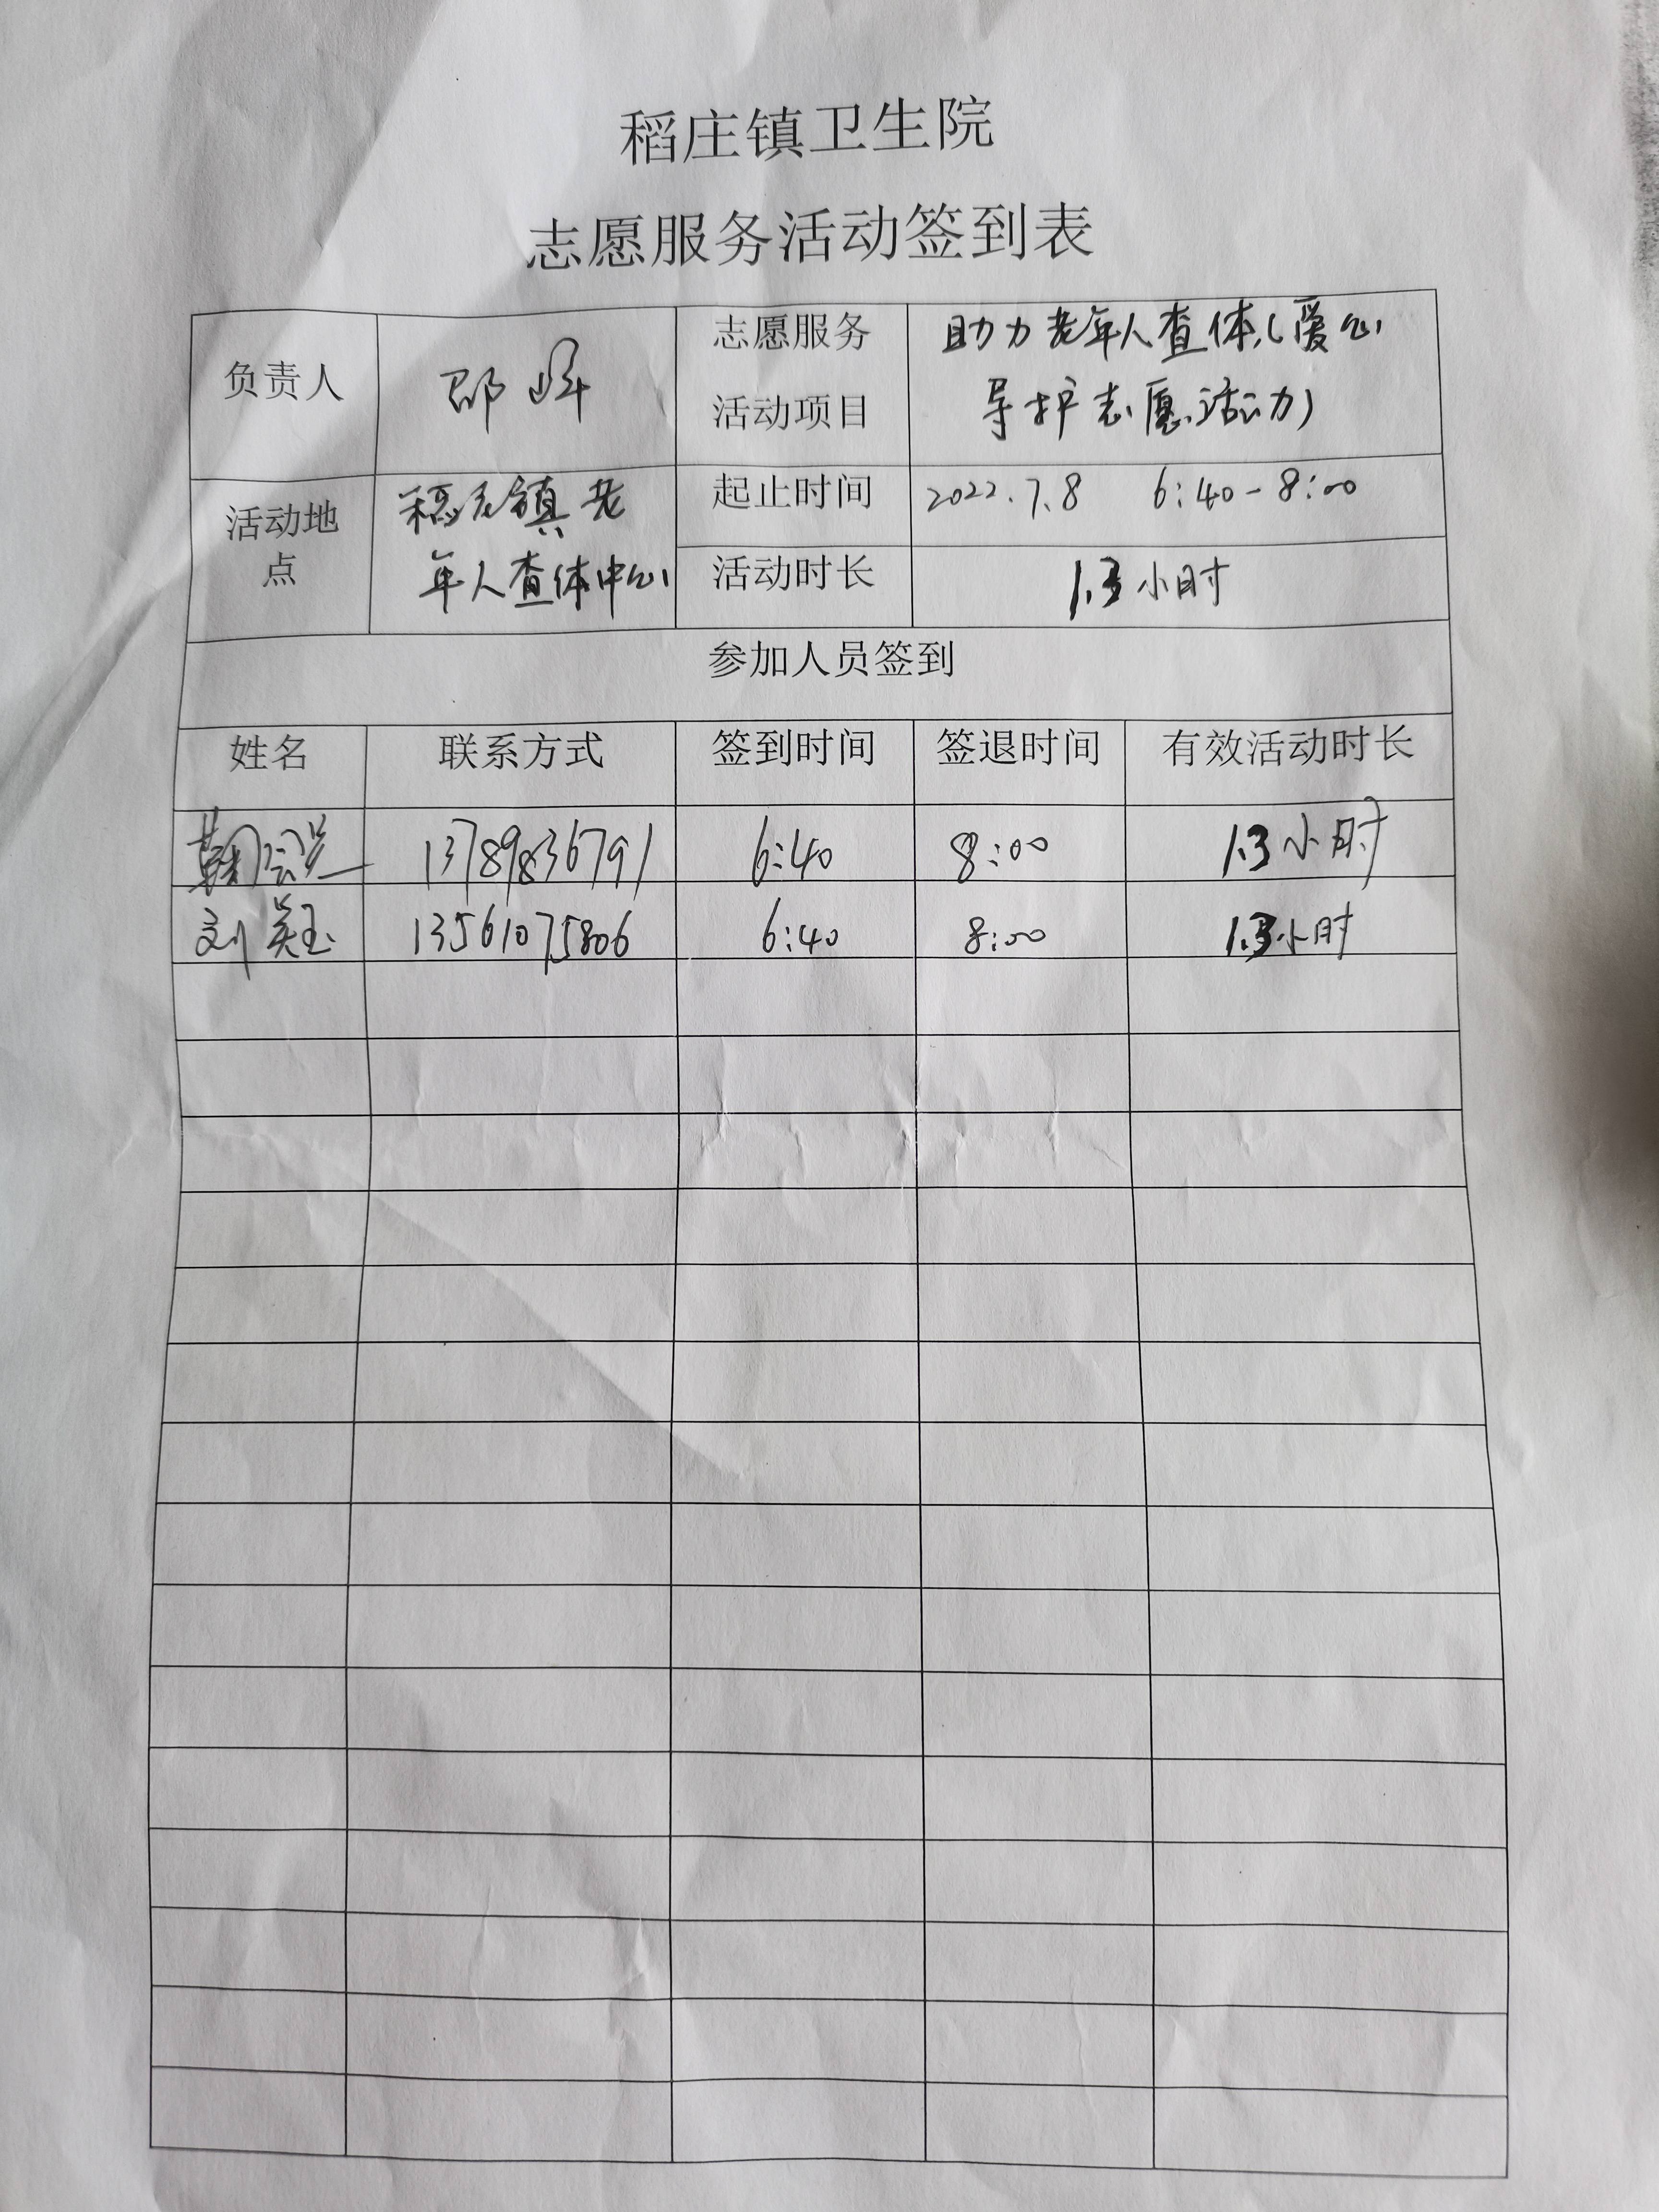 稻庄镇卫生院
志愿服务活动签到表
负责人
志愿服务
活动项目
助力老年人查体(爱心
导护志愿活动)
活动地
点
稻庄镇老
年人查体中心
起止时间
2022.7.8 6:40-8:00
活动时长
1.3小时
参加人员签到
姓名 联系方式 签到时间 签退时间 有效活动时长
13789836791 6:40 8:00 1.3小时
刘英玉 13561075806 6:40 8:00 1.3小时